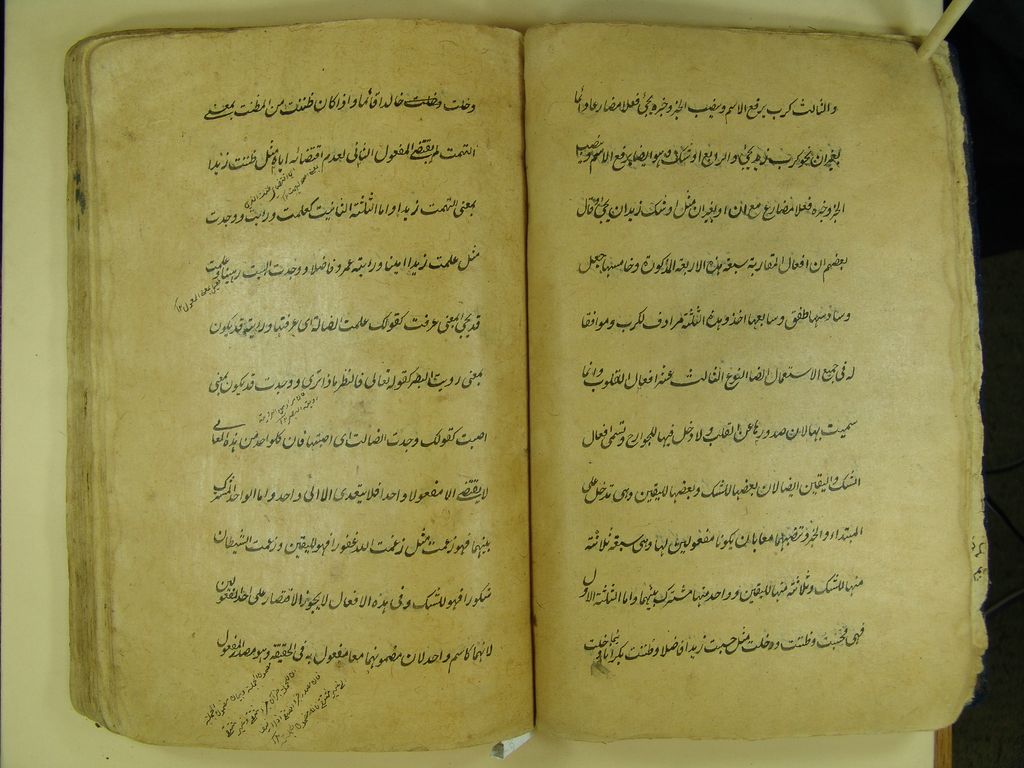 والثالث كرب يرفع الاسم وينصب الخبر وخبره يجئ فعلا مضارعا دائما
بغير ان نحو كرب زيد يجئ والرابع اوشك وهو ايضا يرفع الاسم وينصب
الخبر وخبره فعلا مضارع مع ان او بغير ان مثل اوشك زيد ان يجئ وقال
بعضهم ان افعال المقاربة سبعة هذه الاربعة المذكورة وخامسها جعل
وسادسها طفق وسابعها اخذ وهذه الثلثة مرادف لكرب وموافقا
له في جميع الاستعمال ايضا النوع الثالث عشر افعال القلوب وانما
سميت بها لان صدورها عن القلب ولا دخل فيها للجوارح وتسمى افعال
الشك واليقين ايضا لان بعضها للشك وبعضها لليقين وهى تدخل على
المبتداء والخبر وتنصبهما معا بان يكونا مفعولين لها وهى سبعة ثلاثة
منها للشك وثلاثة منها لليقين وواحد منها مشترك بينهما واما الثلثة الاول
فهى حسبت وظننت وخلت مثل حسبت زيدا فاضلا وظننت بكرا نائما وخلت
وخلت خالدا قائما واذا كان ظننت من المظنة بمعنى
التهمت لم يقتض المفعول الثانى لعدم اقتضائه اياه مثل ظننت زيدا
بمعنى اتهمت زيدا واما الثلثة الثانية كعلمت ورايت ووجدت
مثل علمت زيدا امينا ورايت عمروا فاضلا ووجدت البيت رهينا وعلمت
قد يجئ بمعنى عرفت كقولك علمت الضالة اى عرفتها ورايت قد يكون
بمعنى رويت البصر كقوله تعالى فانظر ماذا ترى ووجدت قد يكون بمعنى
اصبت كقولك وجدت الضالة اى اصبتها فان كل واحد من هذه المعانى
لا يقتضى الا مفعولا واحدا فلا يتعدى الا الى واحد واما الواحد المشترك
بينهما فهو زعمت مثل زعمت الله غفورا فهو لليقين وزعمت الشيطان
شكورا فهو للشك وفى هذه الافعال لا يجوز الاقتصار على احد المفعولين
لانهما كاسم واحد لان مضمونهما معا مفعول به فى الحقيقة وهو مصدر المفعول